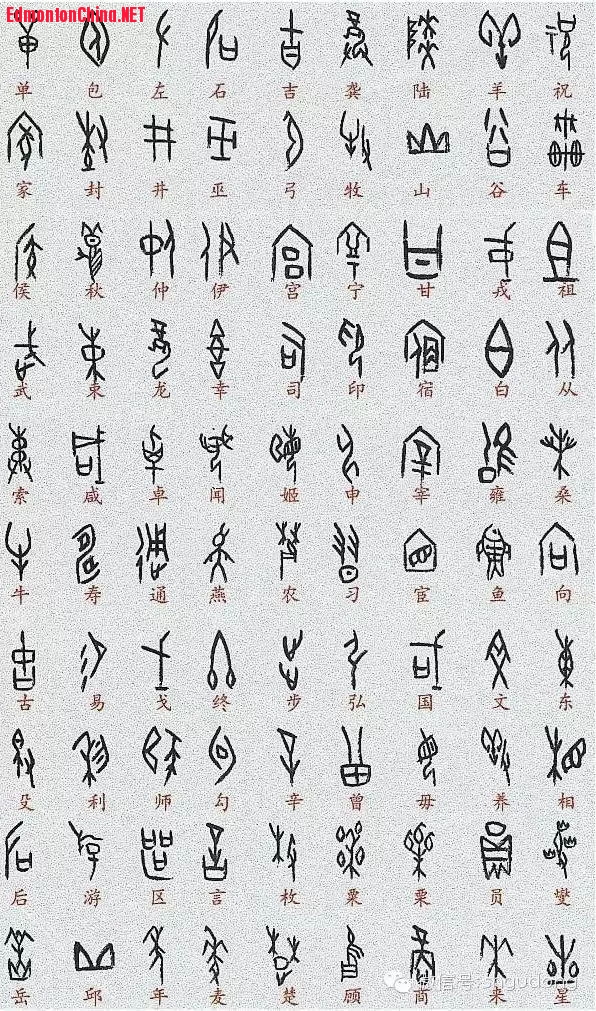 EdmontonChina.NET
单 包 左 石 吉 龚 陆 羊 祝
家 封 井 巫 弓 牧 山 谷 车
侯 秋 仲 伊 宫 宁 甘 戎 祖
武 束 龙 幸 司 印 宿 白 从
索 咸 卓 闻 姬 申 宰 雍 桑
牛 寿 通 燕 农 习 宦 鱼 向
古 易 戈 终 步 弘 国 文 东
殳 利 师 勾 辛 曾 毋 养 相
后 游 区 言 枚 粟 栗 员 燮
岳 邱 年 麦 楚 顾 商 来 星
微信号: